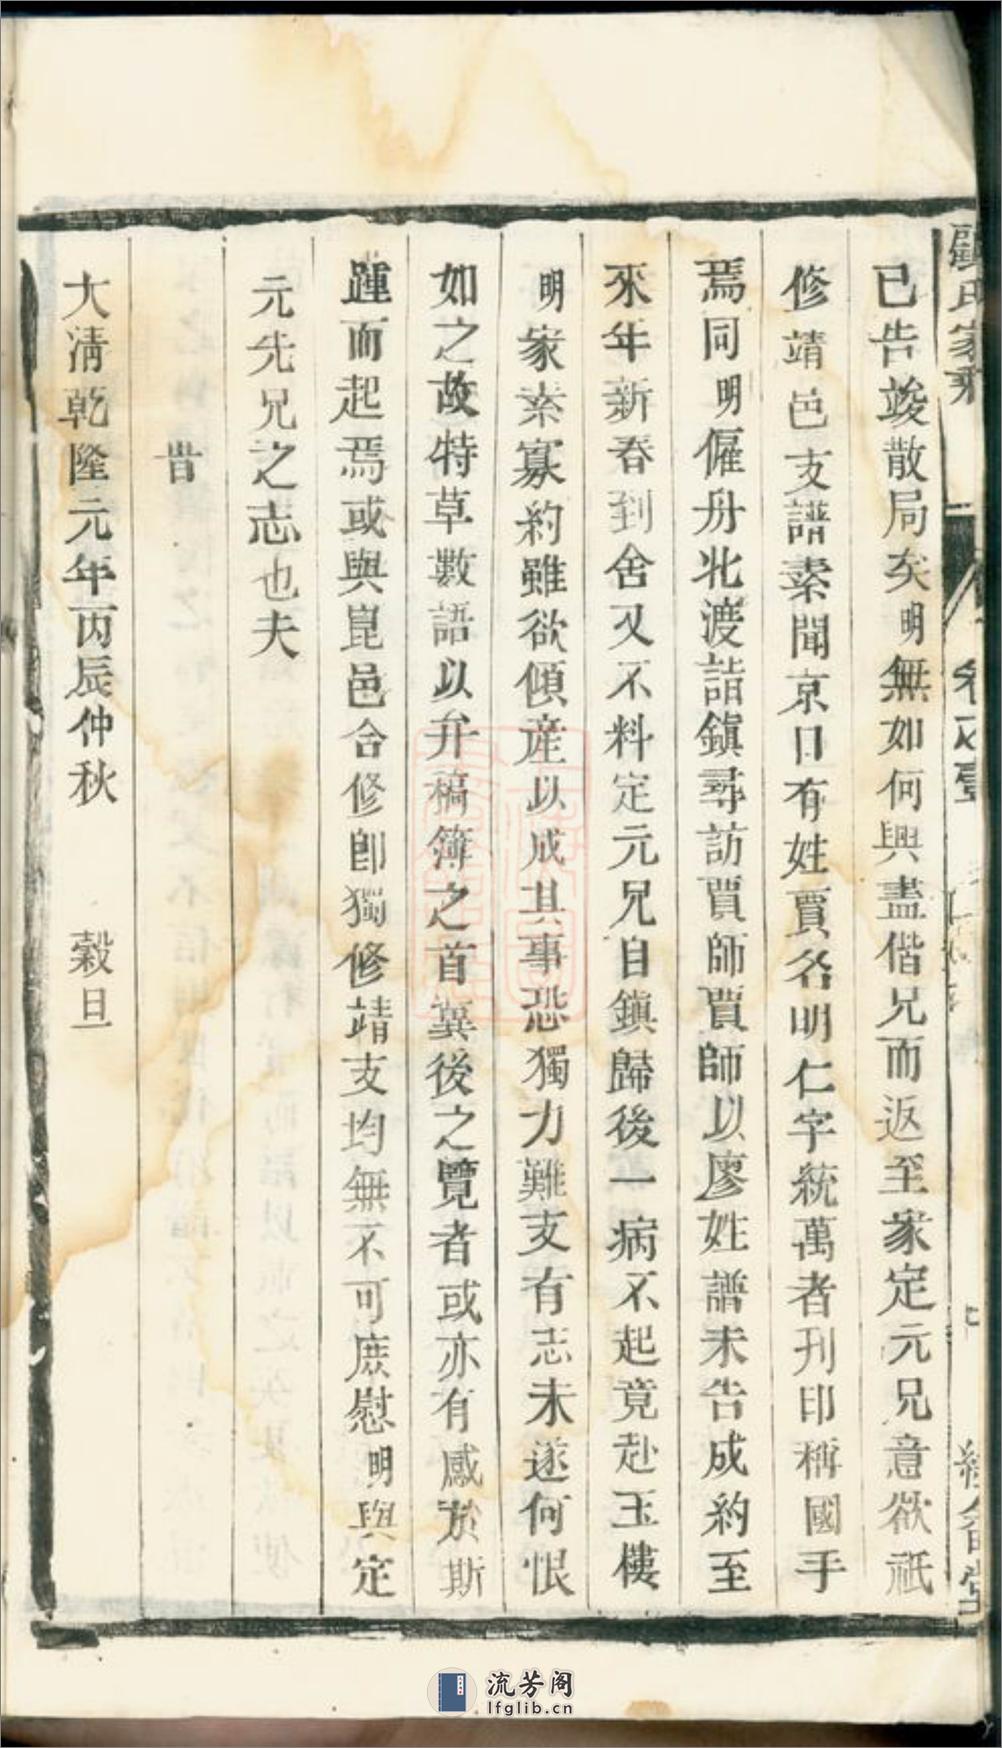 氏家乘 卷之壹
已告竣散局矣明無如何興盡偕兄而返至家定元兄意欲祇
修靖邑支譜素聞京口有姓賈名明仁字統萬者刋印稱國手
焉同明僱舟北渡詣鎮尋訪賈師賈師以廖姓譜未告成約至
來年新春到舍又不料定元兄自鎮歸後一病不起竟赴玉樓
明家素寡約雖欲傾產以成其事恐獨力難支有志未遂何恨
如之故特草數語以弁稿簿之首冀後之覽者或亦有感於斯
踵而起焉或與崑邑合修卽獨修靖支均無不可庶慰明與定
元先兄之志也夫
旹
大清乾隆元年丙辰仲秋 穀旦
流芳阁
lfglib.cn